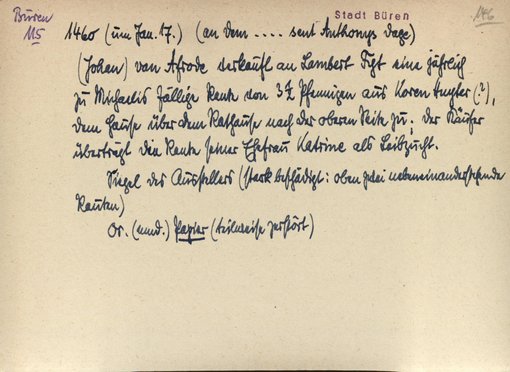 Büren
115
Stadt Büren
146
1460 (um Jan. 17.) (an dem .... sent Anthonys dage)
(Johan) van Afrode verkauft an Lambert eine jährlich
zu Michaelis fällige Rente von 3 Pfennigen aus (?),
dem Hause über dem Rathause nach der oberen Seite zu; der Käufer
überträgt den Rente seiner Ehefrau Katrine als Leibzucht.
Siegel des Ausstellers (stark beschädigt: oben zwei nebeneinanderstehende
Rauten)
Or. (mnd.) Papier (teilweise zerstört)